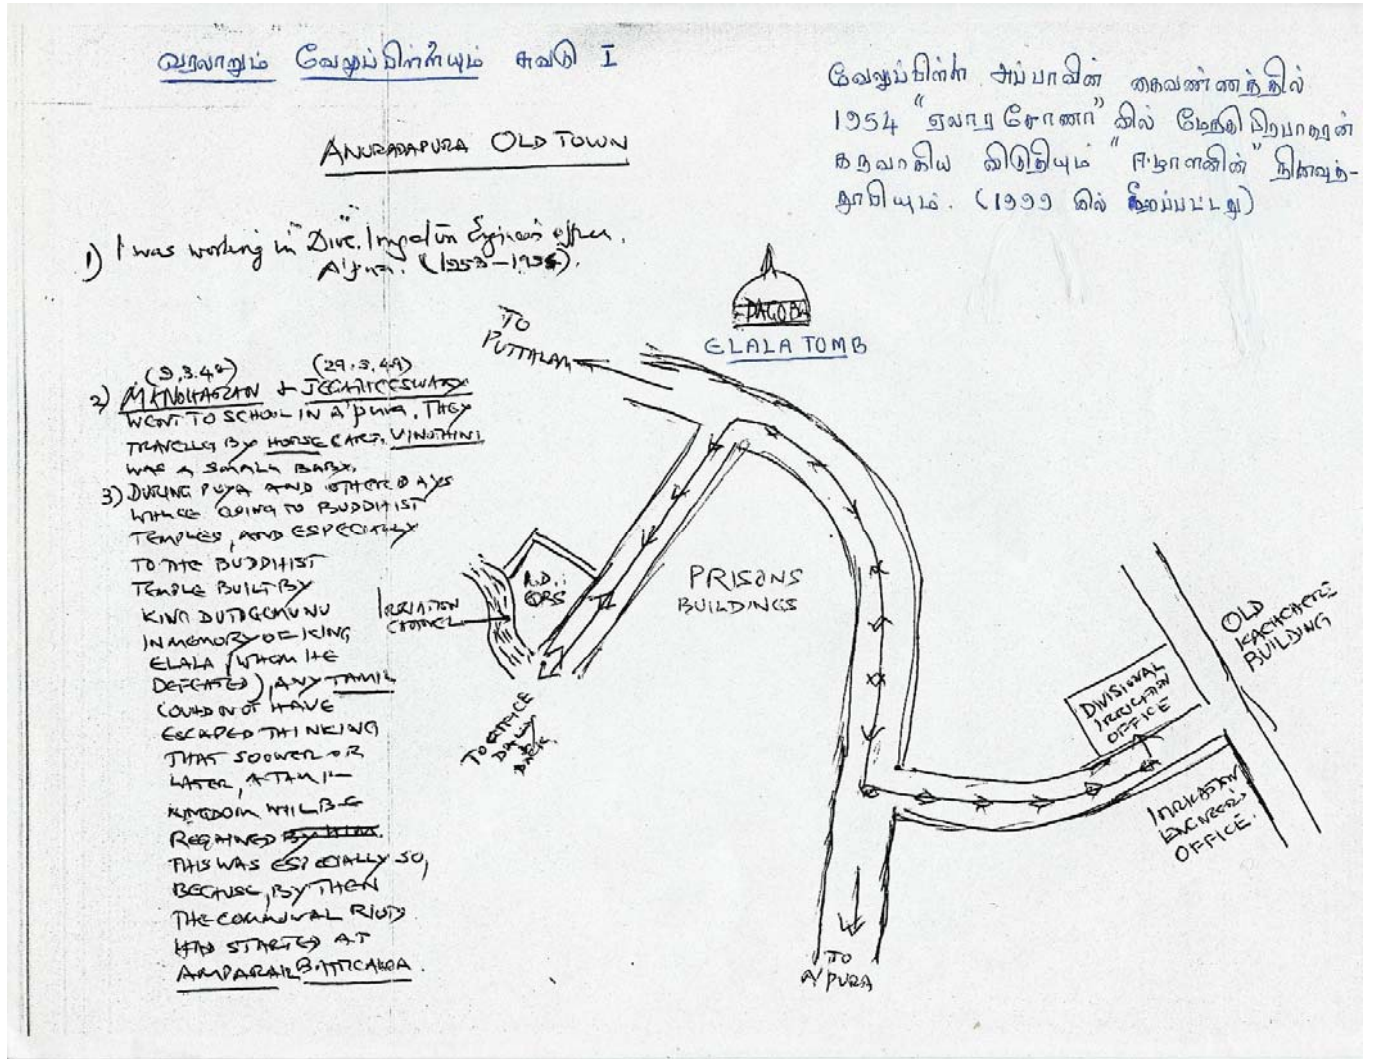 வரலாறும் வேலுப்பிள்ளையும் சுவடு I
வேலுப்பிள்ளை அப்பாவின் கைவண்ணத்தில்
1954 "ஏலாரசோணா" வில் மேதகு பிரபாகரன்
கருவாகிய விடுதியும் "ஈழாளனின்" நினைவுத்-
தூபியும். (1999 இல் கீறப்பட்டது)
ANURADAPURA OLD TOWN
1) I was working in "Divl." Irrigation Engineer's office,
A'pura. (1953-1956).
DAGOBA
ELALA TOMB
TO
PUTTALAM
(29.5.49)
2) MANOHARAN & JEGATHEESWARY
WENT TO SCHOOL IN A'pura, THEY
TRAVELLED BY HORSE CART. VINOTHINI
WAS A SMALL BABY.
3) DURING PUYA AND OTHER DAYS
WHILE GOING TO BUDDHIST
TEMPLES, AND ESPECIALLY
TO THE BUDDHIST
TEMPLE BUILT BY
KING DUTUGEMUNU
IN MEMORY OF KING
ELALA (WHOM HE
DEFEATED), ANY TAMIL
COULD NOT HAVE
ESCAPED THINKING
THAT SOONER OR
LATER, A TAMIL
KINGDOM WILL BE
REGAINED BY HIM.
THIS WAS ESPECIALLY SO,
BECAUSE, BY THEN
THE COMMUNAL RIOTS
HAD STARTED AT
AMPARAI, BATTICALOA.
IRRIGATION
CHANNEL
TO OFFICE
DAILY
&
BACK
PRISONS
BUILDINGS
OLD
KACHCHERI
BUILDING
DIVISIONAL
IRRIGATION
OFFICE
IRRIGATION
ENGINEERS
OFFICE.
TO
A'PURA